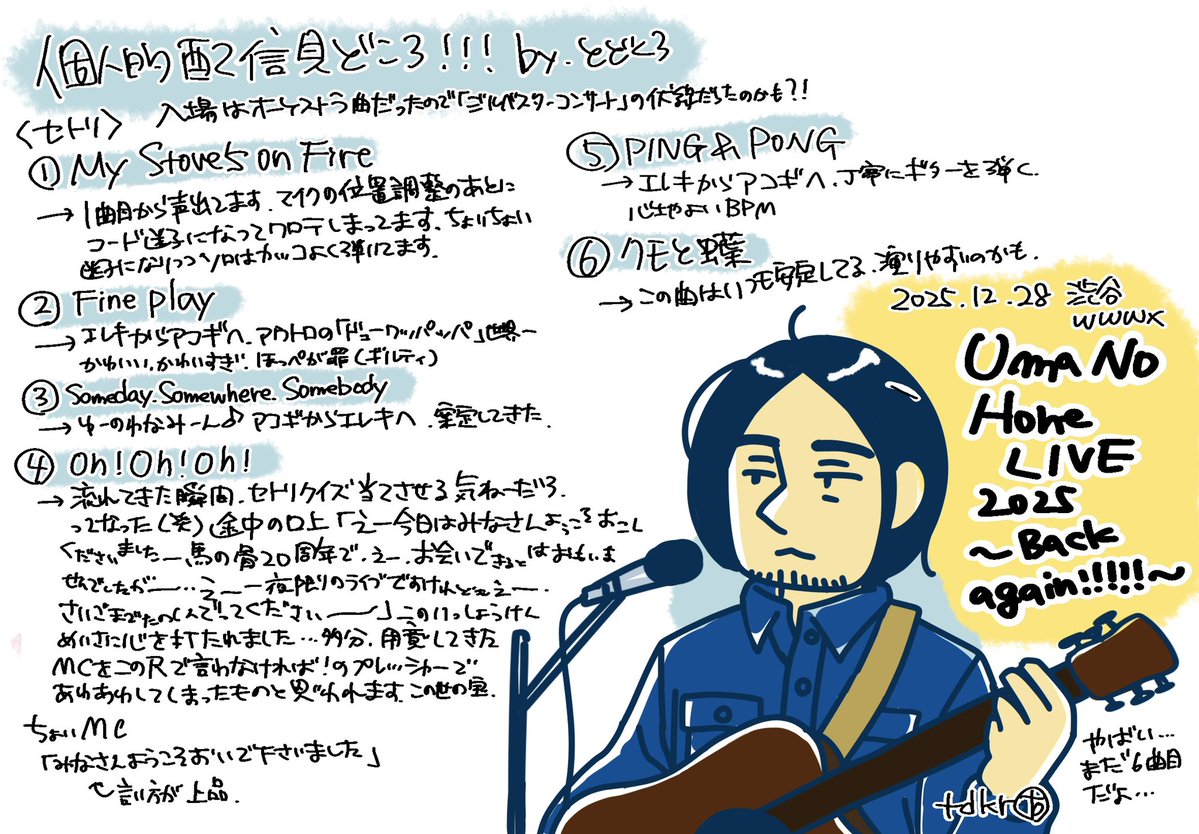 個人的配信見どころ!!! by.とどくろ
入場はオーケストラ曲だったので「ジルベスターコンサート」の伏線だったのかも?!
〈セトリ〉
① My Stove's on Fire
→ 1曲目から声出てます。マイクの位置調整のあとに
コード迷子になってワロテしまってます。ちょいちょい
迷子になりつつソロはカッコよく弾いてます。
② Fine play
→ エレキからアコギへ。アウトロの「ドゥーワッパッパ」世界一
かわいい。かわいすぎ。ほっぺが罪(ギルティ)
③ Someday.Somewhere.Somebody
→ ゆーのわなみーん♪ アコギからエレキへ。安定してきた。
④ Oh!Oh!Oh!
→ 流れてきた瞬間、セトリクイズ当てさせる気ねーだろ。
ってなった(笑)途中の口上「えー今日はみなさんようこそおこし
くださいましたー馬の骨20周年で、えー、お会いできるとはおもいま
せんでしたが〜…えー一夜限りのライブですけれどぇえー
さいごまでたのしんでってくださいぃ〜」このいっしょうけん
めいさに心を打たれました…多分、用意してきた
MCをこの尺で言わなければ!のプレッシャーで
あわあわしてしまったものと思われます。この世の宝。
ちょいMC
「みなさんようこそおいで下さいました」
言い方が上品。
⑤ PING&PONG
→ エレキからアコギへ。丁寧にギターを弾く。
心地よいBPM
⑥ クモと蝶
→ この曲はいつも安定してる。演りやすいのかも。
2025.12.28 渋谷
WWWX
Uma No
Hone
LIVE
2025
〜Back
again!!!!!〜
やばい…
まだ6曲目
だよ…
tdkr